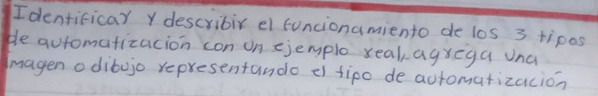 Identificar y describir el funcionamiento de los 3 tipos
de automatización con un ejemplo real, agrega una
imagen o dibujo representando el tipo de automatización